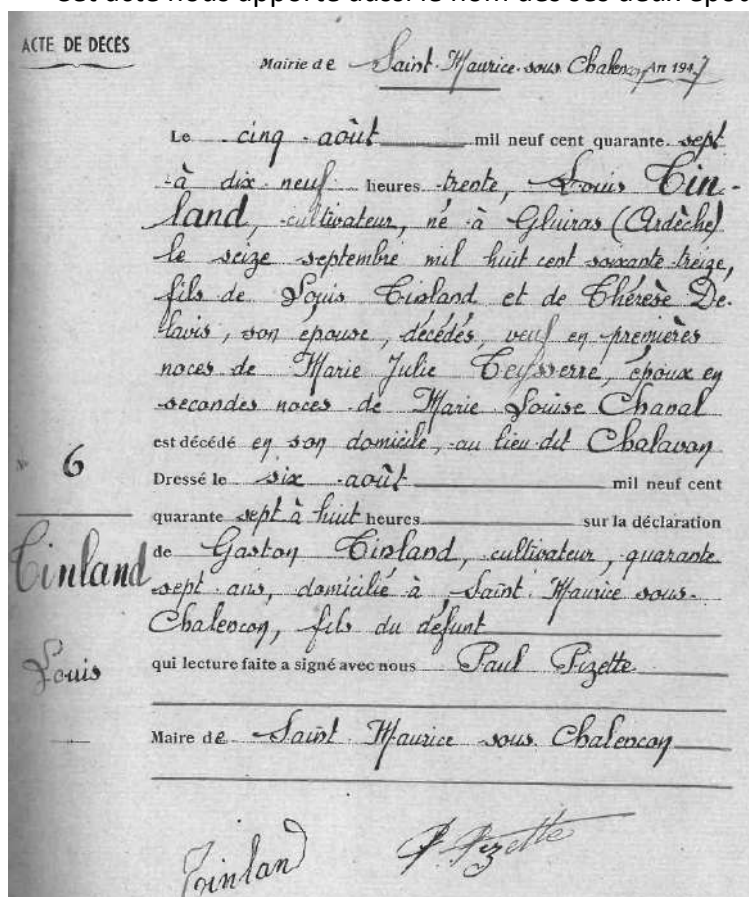 cet acte nous apporte aussi le nom des ses deux épou
ACTE DE DÉCÈS
Mairie de Saint-Maurice-sous-Chalencon An 1947
Le cinq août mil neuf cent quarante sept
à dix-neuf heures trente, Louis Tin-
land, cultivateur, né à Gluiras (Ardèche)
le seize septembre mil huit cent soixante-treize,
fils de Louis Tinland et de Thérèse De-
lavis, son épouse, décédés, veuf en premières
noces de Marie Julie Teysserre, époux en
secondes noces de Marie Louise Chanal
est décédé en son domicile, au lieu dit Chalavon
N° 6
Dressé le six août mil neuf cent
quarante sept à huit heures sur la déclaration
Tinland
de Gaston Tinland, cultivateur, quarante
sept ans, domicilié à Saint-Maurice-sous-
Chalencon, fils du défunt
Louis
qui lecture faite a signé avec nous Paul Pizette
Maire de Saint-Maurice sous Chalencon
Tinland P. Pizette